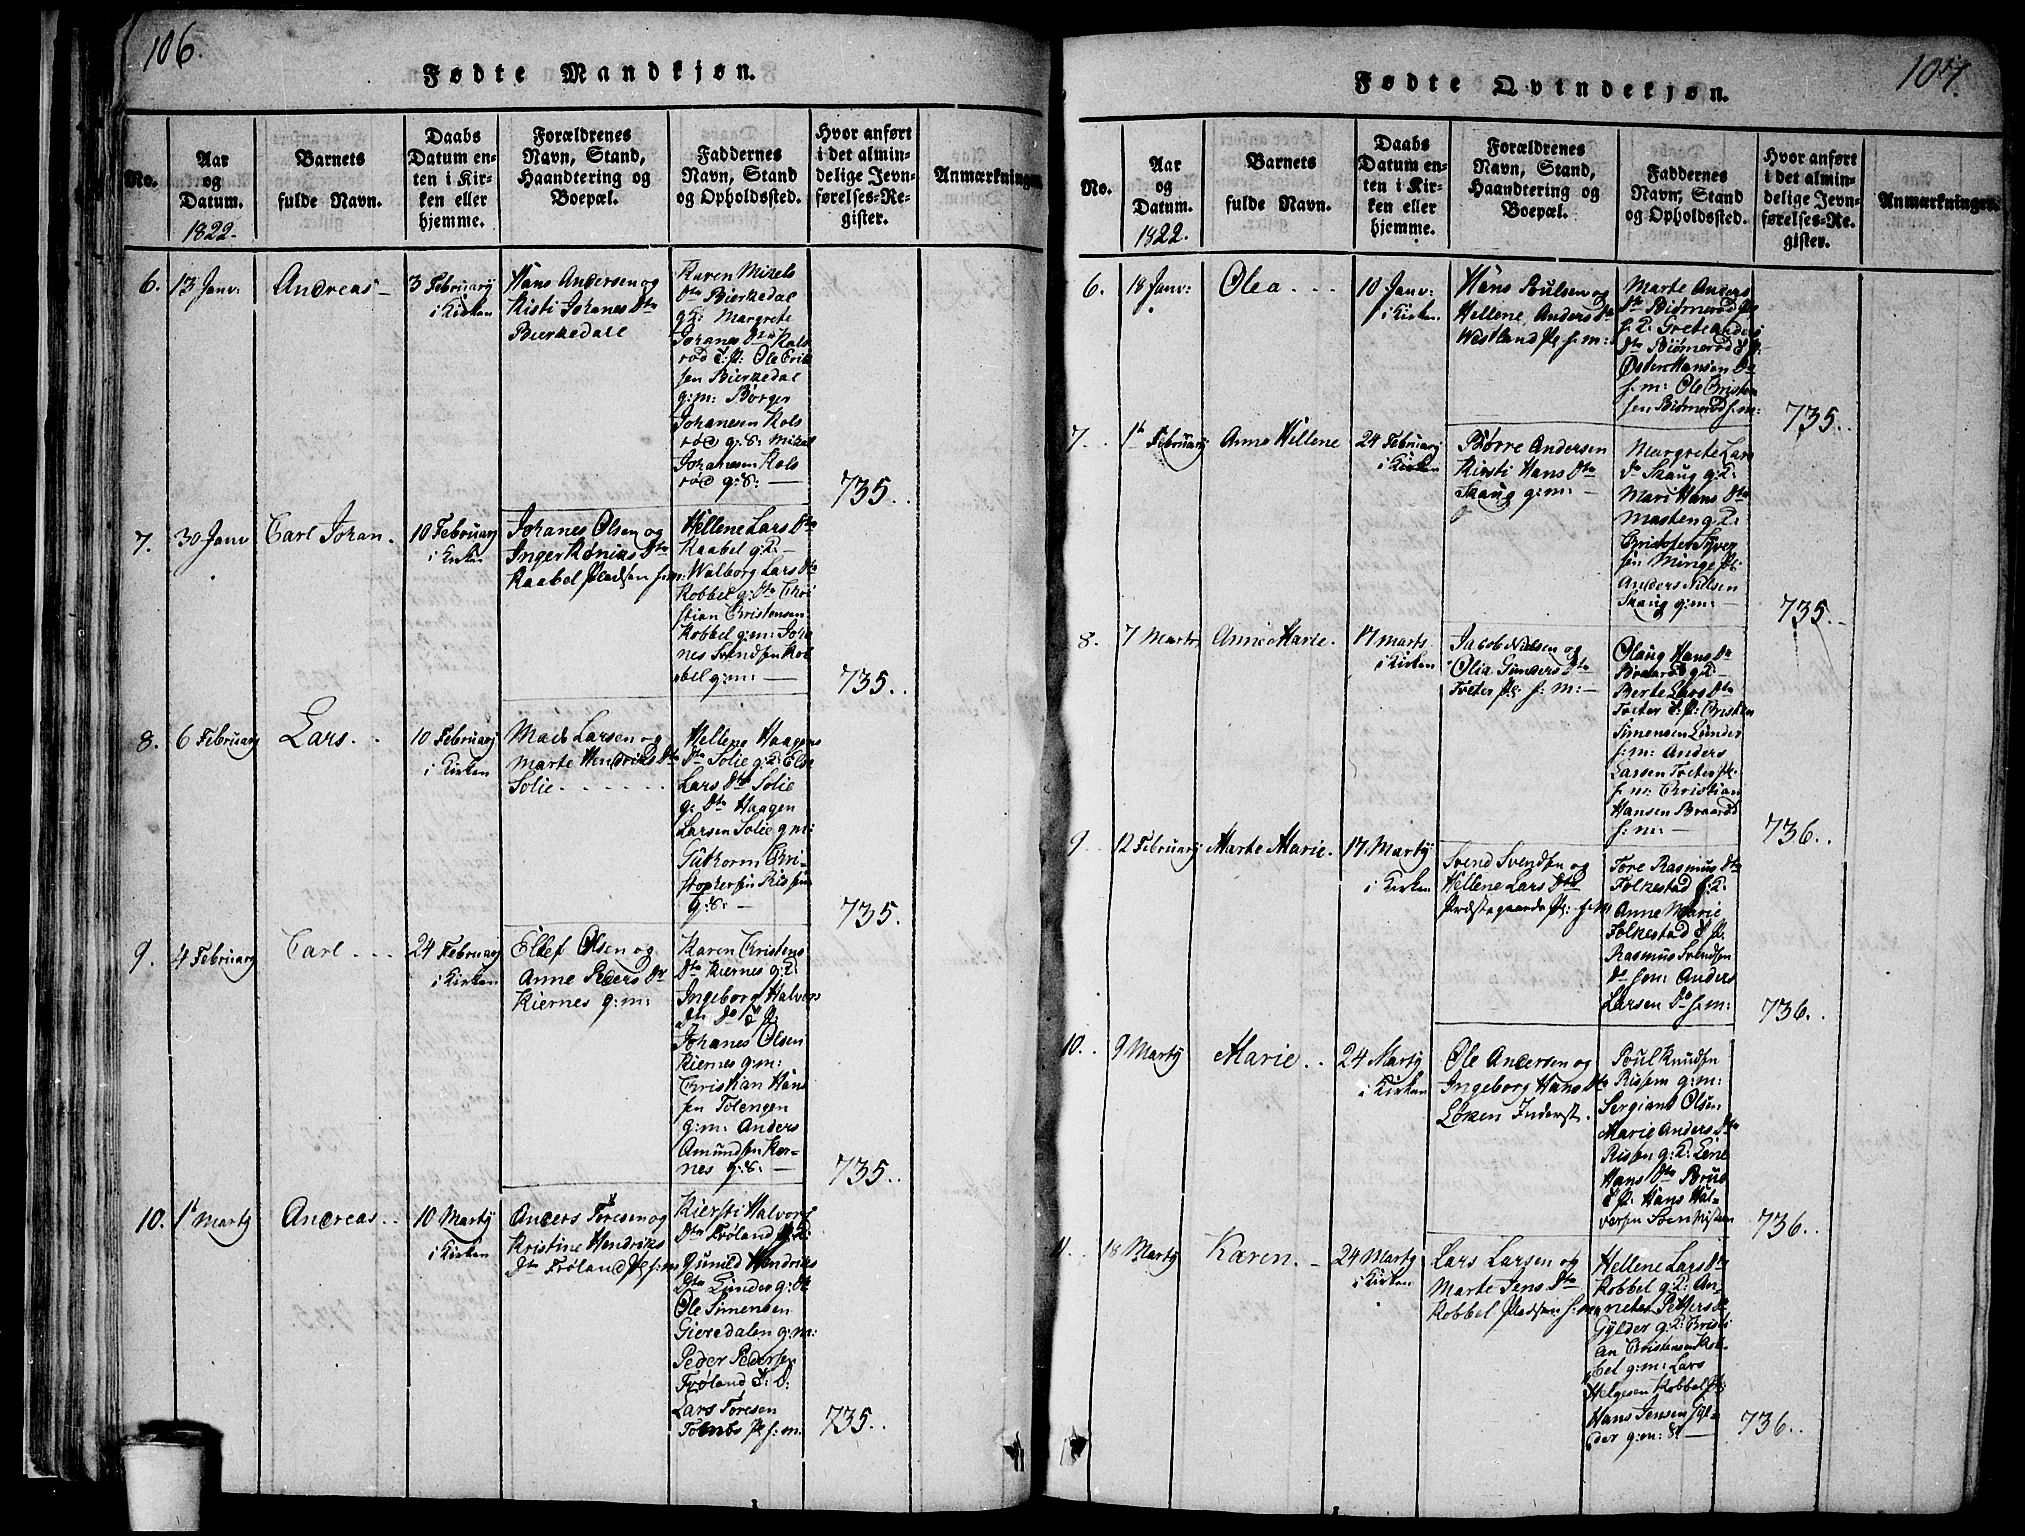 106.
Fødte Mandkjøn.
No.
Aar
og
Datum.
1822.
Barnets
fulde Navn.
Daabs
Datum en-
ten i Kir-
ken eller
hjemme.
Forældrenes
Navn, Stand,
Haandtering og
Boepæl.
Faddernes
Navn, Stand
og Opholdssted.
Hvor anført
i det almin-
delige Jevn-
førelses-Re-
gister.
Anmærkninger.
6.
13 Janv:
Andreas
3 Februarj
i Kirken
Hans Andersen og
Kirsti Johanes Dtr
Bierkedale
Karen Mikels
Dtr Bierkedal
g: Margrete
Johanes Dtr Kols
röd Ole Erik
sen Bierkedal
g:m: Börger
Johanesen Kols
röd g:s: Mikel
Johanesen Kols
röd g:s:
735.
7.
30 Janv
Carl Johan.
10 Februarj
i Kirken
Johanes Olsen og
Inger Dtr
Raabel Pladsen h:m:
Hellene Lars Dtr
Raabel g:
Walborg Lars Dtr
Kobbel g: Chri
stian Christensen
Kobbel g:m: Joha
nes Svendsen Kob
bel g:m:
735.
8.
6 Februarj
Lars.
10 Februarj
i Kirken
Mads Larsen og
Marte Hendriks Dtr
Solie
Hellene Haagens
Dtr Solie g: Else
Lars Dtr Solie
g: Haagen
Larsen Solie g:m:
Gutkorm Chri-
stophersen
g:s:
735.
9.
4 Februarj
Carl
24 Februarj
i Kirken
Ellef Olsen og
Anne Peders Dtr
Kiernes g:m:
Karen Christens
Dtr Kiernes g:
Ingeborg Halvors
Johanes Olsen
Kiernes g:m:
Christian Hans
sen Tolengen
g:m: Anders
Amundsen Kier-
nes g:s:
735.
10.
1 Martj
Andreas
10 Martj
i Kirken
Anders Toresen og
Kristine Hendriks
Dtr Fröland h:m:
Kiersti Halvors
Dtr Fröland
Gunild Hendriks
Dtr Lunder g:
Ole Simensen
Gieredalen g:m:
Peder Pedersen
Fröland
Lars Toresen
h:m:
735.
107.
Fødte Qvindekjøn.
No.
Aar
og
Datum.
1822.
Barnets
fulde Navn.
Daabs
Datum en-
ten i Kir-
ken eller
hjemme.
Forældrenes
Navn, Stand,
Haandtering og
Boepæl.
Faddernes
Navn, Stand
og Opholdssted.
Hvor anført
i det almin-
delige Jevn-
førelses-Re-
gister.
Anmærkninger.
6.
18 Janv:
Olea
10 Janv:
i Kirken
Hans Poulsen og
Hellene Anders Dtr
Westland h:m:
Marte Anders
Dtr Biömeröd
Grete Anders
Dtr Biömeröd
Östen Hansen Do
h:m: Ole Christen
sen Biömeröd h:m:
735.
7.
1 Februarj
Anne Hellene
24 Februarj
i Kirken
Börre Andersen
Kirsti Hans Dtr
Skaug g:m:
Margrete Lars
Dr Skaug g:
Mari Hans Dtr
Masten g:
Christofer Syver
sen Minge
Anders Nilsen
Skaug g:m:
735.
8.
7 Marts
Anne Marie.
17 Marts
i Kirken
Jacob Nielsen og
Olia Gunders Dtr
Tveter h:m:
Olaug Hans Dtr
Braaröd g:
Berte Lars Dtr
Tveter Cristen
Simensen Lunder
h:m: Anders
Larsen Tveter
h:m: Christian
Hansen Braaröd
h:m:
736.
9
12 Februarj
Marte Marie.
17 Martj
i Kirken
Svend Svendsen og
Hellene Lars Dtr
Præstegaards h:m
Tore Rasmus Dtr
Folkestad
Anne Marie
Folkestad
Rasmus Svendsen
Do h:m: Anders
Larsen Do h:m:
736.
10.
9 Martj
Marie
24 Martj
i Kirken
Ole Andersen og
Ingeborg Hans Dtr
Löken Inderst.
Poul Knudsen
Rissen g:m:
Sergiant Olsen
Marie Anders Dtr
Rissen g: Lene
Hans Dtr
Hans Hal-
versen
736.
11.
18 Martj
Karen.
24 Martj
i Kirken
Lars Larsen og
Marte Jens Dtr
Kobbel Pladsen h:m:
Hellene Lars Dtr
Kobbel g: An-
nete
Gylder g: Christi
an Christensen Kob-
bel g:m: Lars
Helgesen Kobbel
Hans Jensen Gyl-
der g:m:
736.